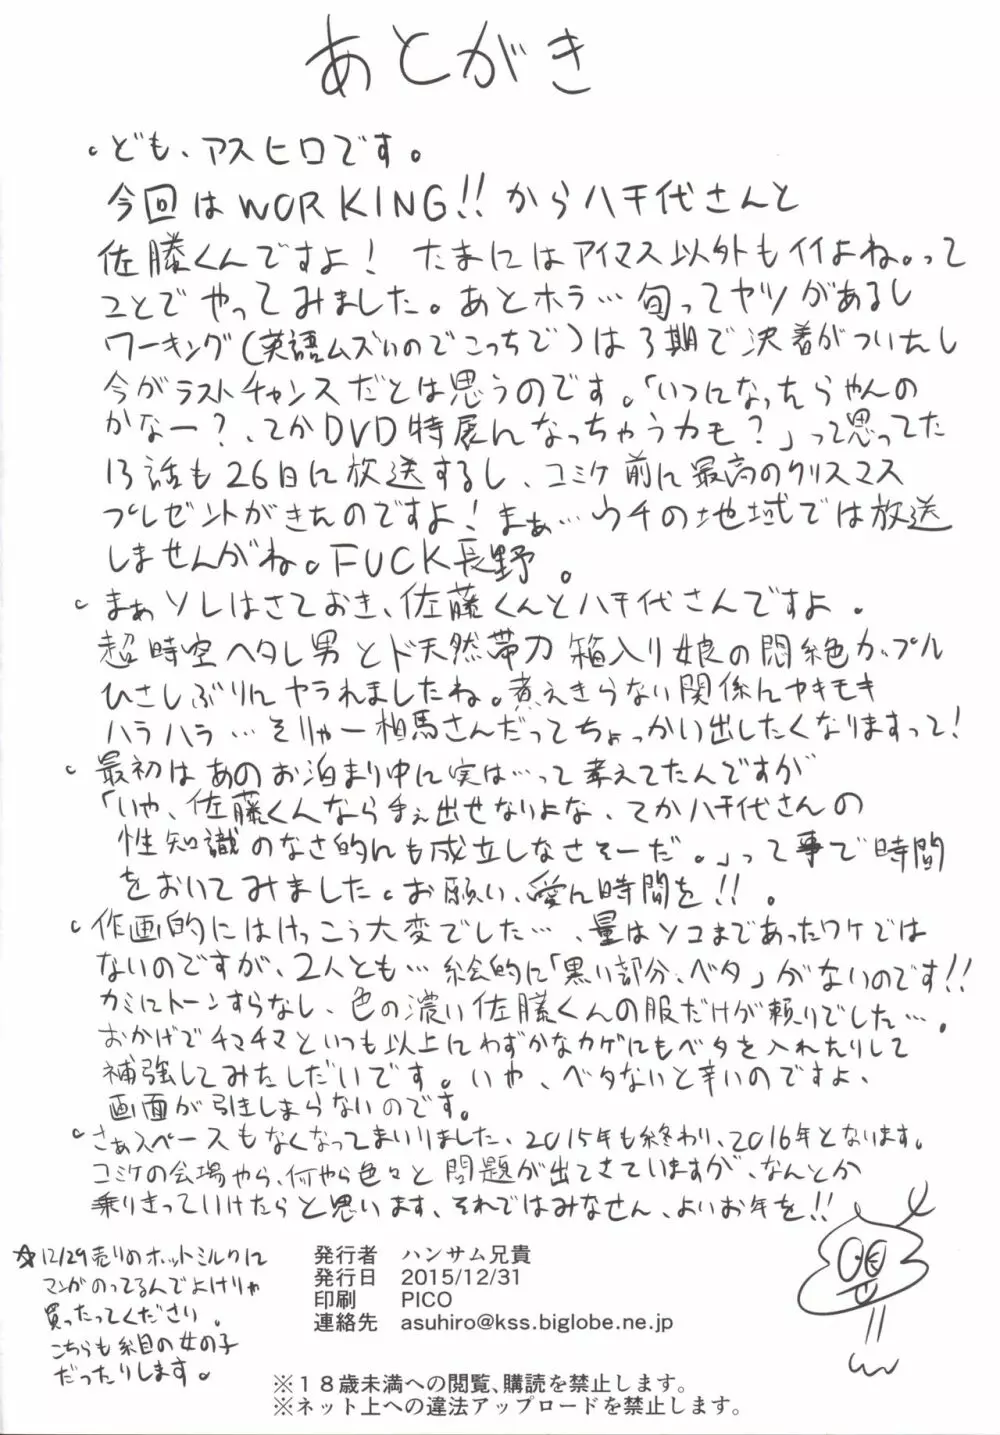 あとがき
。ども、アスヒロです。
今回はWORKING!!から八千代さんと
佐藤くんですよ！ たまにはアイマス以外もイイよね。って
ことでやってみました。あとホラ…旬ってヤツがあるし
ワーキング(英語ムズいのでこっちで)は3期で決着がついたし
今がラストチャンスだとは思うのです。「いつになったらやんの
かなー？、てかDVD特展になっちゃうカモ？」って思ってた
13話も26日に放送するし、コミケ前に最高のクリスマス
プレゼントがきたのですよ！まぁ…ウチの地域では放送
しませんがね。FUCK長野。
。まぁソレはさておき、佐藤くんと八千代さんですよ。
超時空ヘタレ男とド天然帯刀箱入り娘の悶絶カップル
ひさしぶりにヤラれましたね。煮えきらない関係にヤキモキ
ハラハラ…そりゃー相馬さんだってちょっかい出したくなりますって！
。最初はあのお泊まり中に実は…って考えてたんですが
「いや、佐藤くんなら手ぇ出せないよな、てか八千代さんの
性知識のなさ的にも成立しなさそーだ。」って事で時間
をおいてみました。お願い、愛に時間を!!。
。作画的にはけっこう大変でした…、量はソコまであったワケでは
ないのですが、2人とも…絵的に「黒い部分、ベタ」がないのです!!
カミにトーンすらなし、色の濃い佐藤くんの服だけが頼りでした…。
おかげでチマチマといつも以上にわずかなカゲにもベタを入れたりして
補強してみたしだいです。いや、ベタないと辛いのですよ、
画面が引きしまらないのです。
。さぁスペースもなくなってまいりました、2015年も終わり、2016年となります。
コミケの会場やら、何やら色々と問題が出てきていますが、なんとか
乗りきっていけたらと思います、それではみなせん、よいお年を!!
☆12/29売りのホットミルクに
マンガのってるんでよけりゃ
買ったってください。
こちらも糸目の女の子
だったりします。
発行者 ハンサム兄貴
発行日 2015/12/31
印刷 PICO
連絡先 asuhiro@kss.biglobe.ne.jp
※１８歳未満への閲覧、購読を禁止します。
※ネット上への違法アップロードを禁止します。